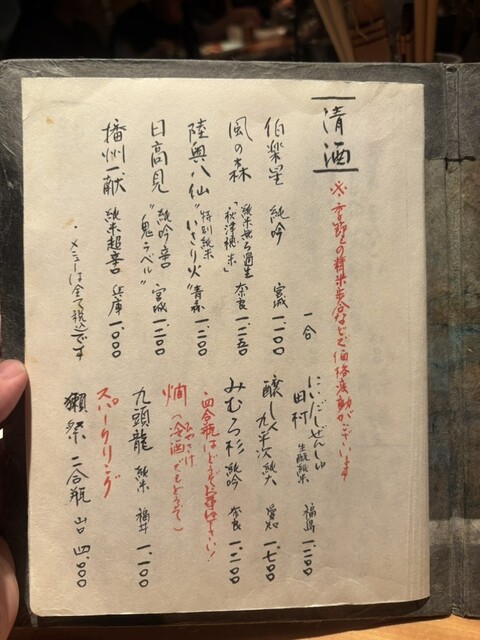 清酒
※季節の精米歩合などで価格変動がございます
一合
伯楽星 純吟 宮城 一、二〇〇
風の森 純米無ろ過生「秋津穂米」 奈良 一、二五〇
陸奥八仙 特別純米"いさり火" 青森 一、二〇〇
日高見 純吟辛口"魚ラベル" 宮城 一、二〇〇
播州一献 純米超辛口 兵庫 一、〇〇〇
・メニューは全て税込です
にいだしぜんしゅ
田村 生酛純米 福島 一、二〇〇
醸し人九平次 純大 愛知 一、七〇〇
みむろ杉 純吟 奈良 一、二〇〇
四合瓶はどうぞお手付け下さい!
燗(ひやざけ(冷酒)でもどうぞ)
九頭龍 純米 福井 一、一〇〇
スパークリング
獺祭 二合瓶 山口 四、〇〇〇